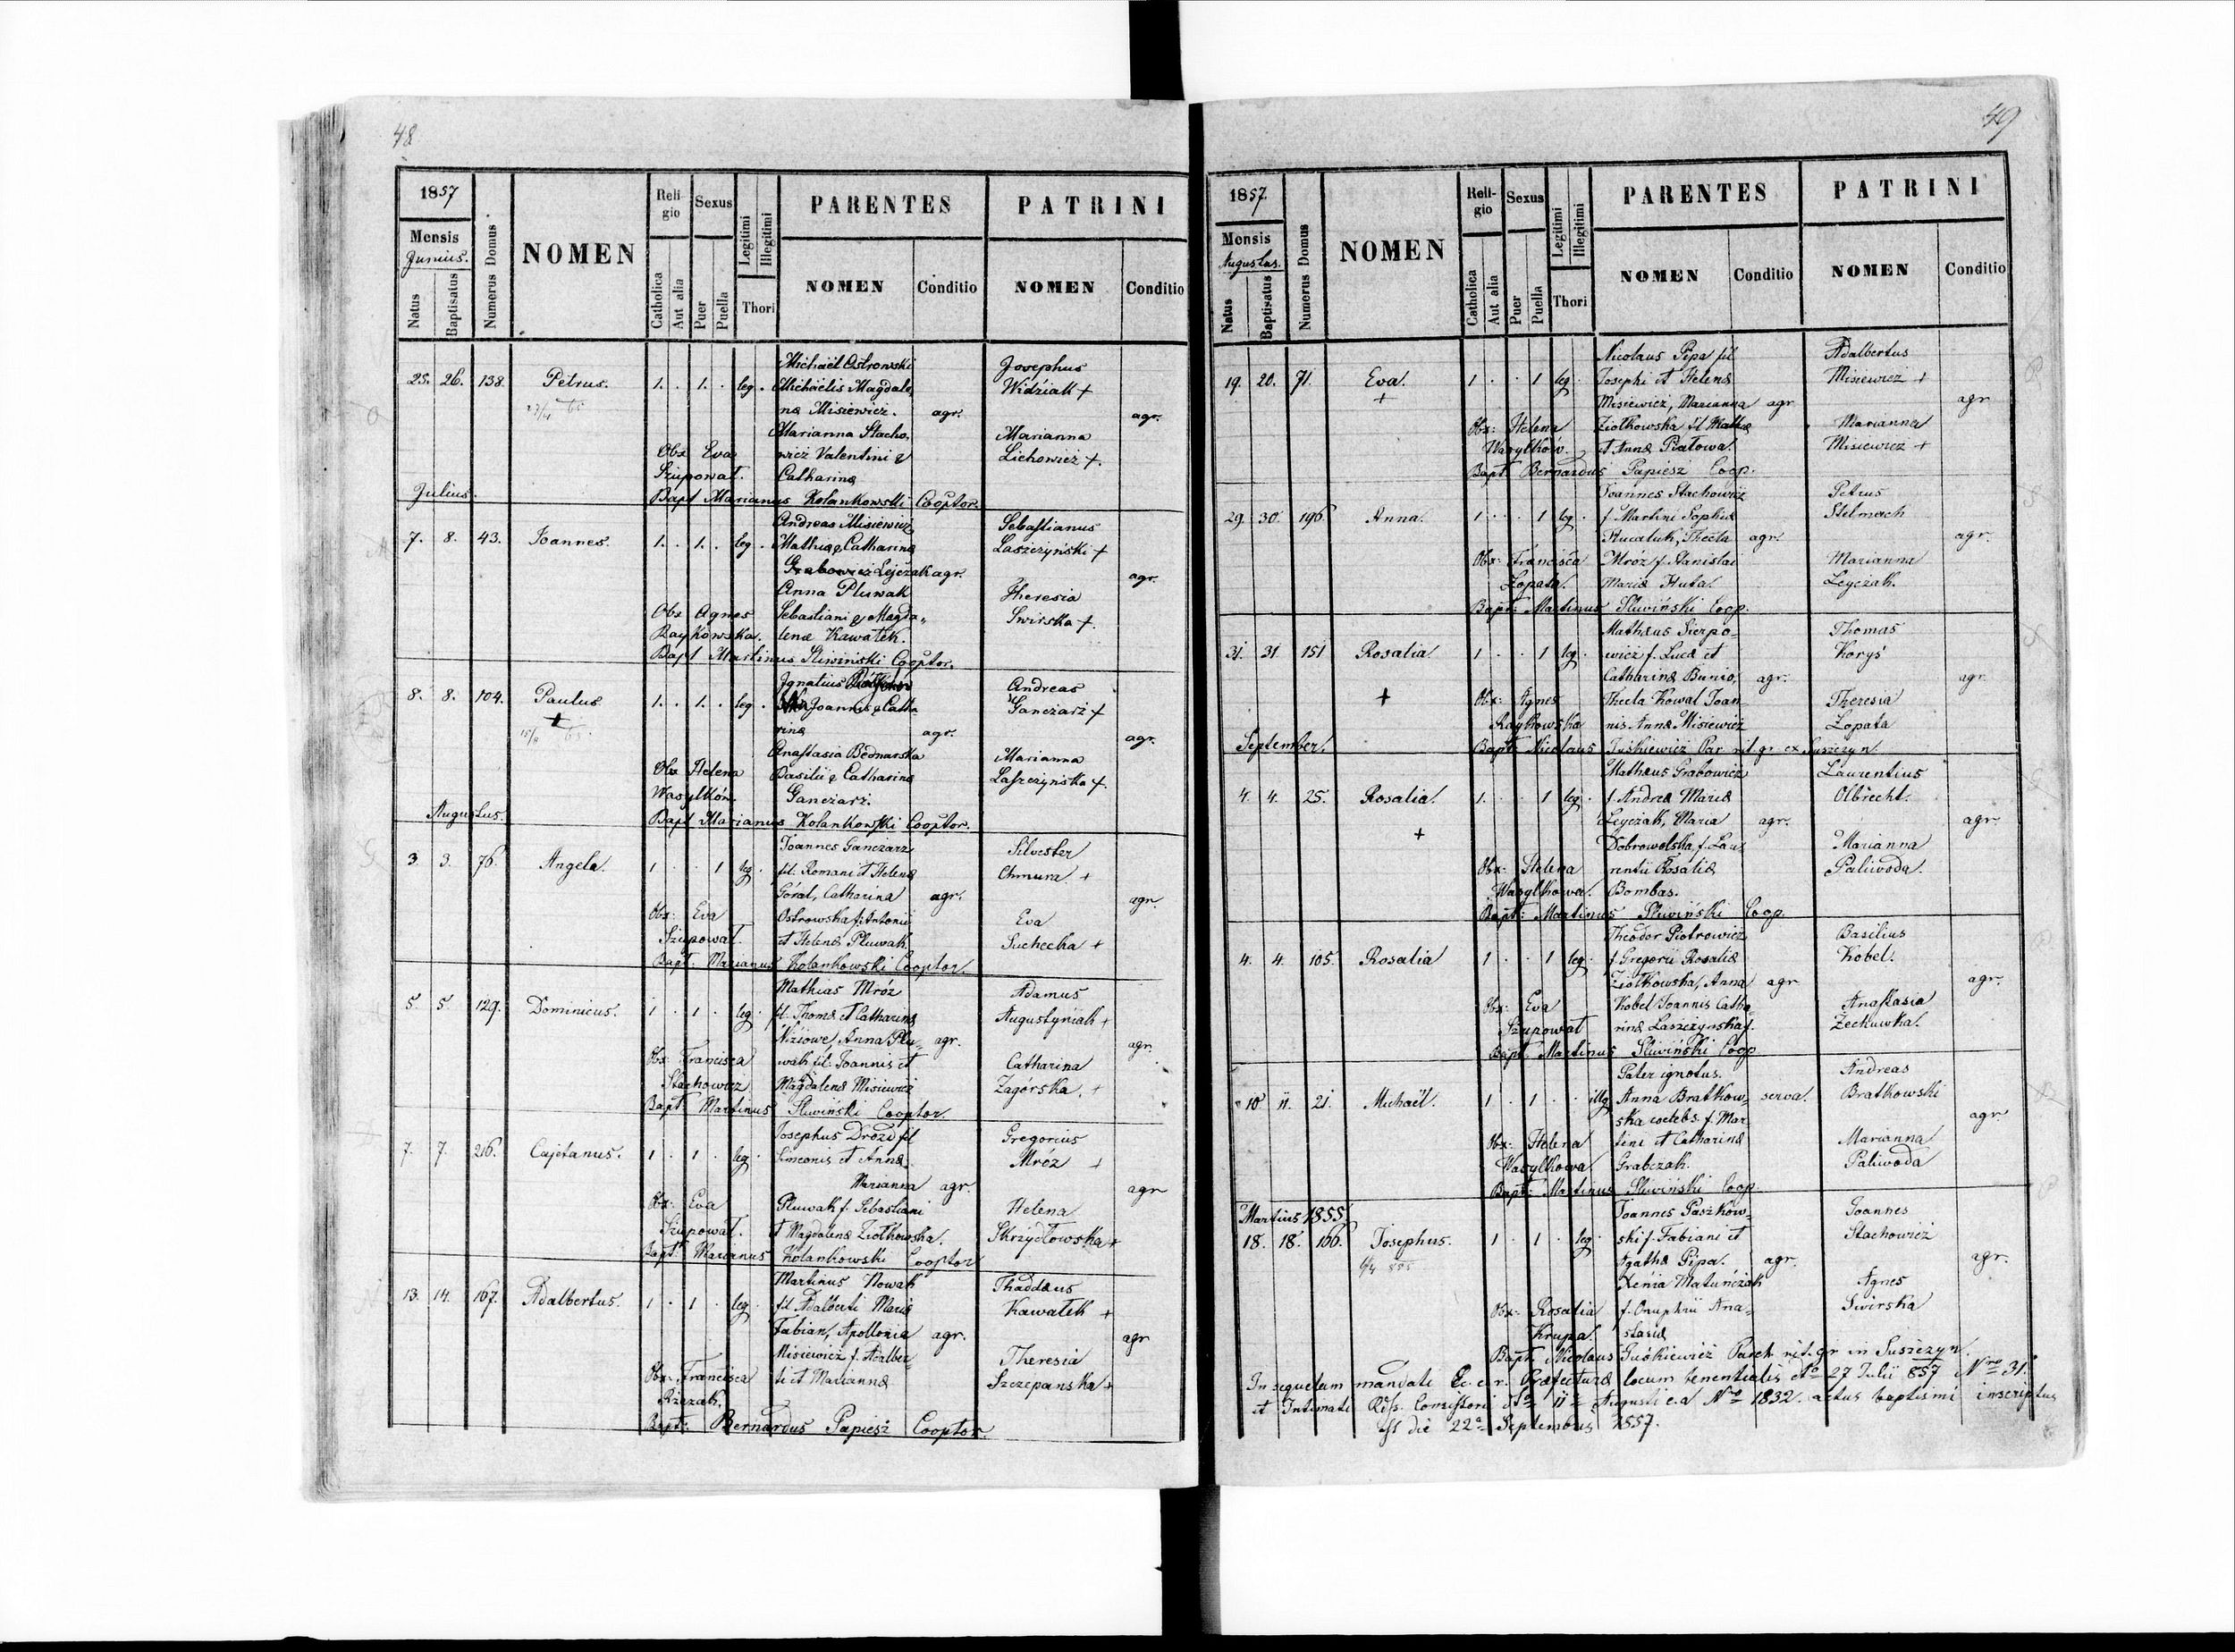 48
1857
Mensis
Junius.
Natus
Baptisatus
Numerus Domus
NOMEN
Religio
Catholica
Aut alia
Sexus
Puer
Puella
Legitimi
Illegitimi
Thori
PARENTES
NOMEN
Conditio
PATRINI
NOMEN
Conditio
Michaël Ostrowski Josephus
25. 26. 138. Petrus. 1. . 1. . leg. Michaelis Magdale, Widziak +
næ Misiewicz. agr. agr.
Marianna Stacho, Marianna
Obx Eva wicz Valentini & Lichowicz +.
Szupowat. Catharinæ
Julius. Bapt Marianus Kolankowski Cooptor.
Andreas Misiewicz Sebastianus
7. 8. 43. Joannes. 1. . 1. . leg. Mathiæ & Catharinæ Laszczyński +
Grabowicz Lejczak agr. agr.
Anna Pluwak Theresia
Obx Agnes Sebastiani & Magda, Swirska +.
Raykowska. lenæ Kawałek.
Bapt Martinus Sliwiński Cooptor.
Ignatius Andreas
8. 8. 104. Paulus 1. . 1. . leg. Joannis & Catha Ganczarz +
+
rinæ agr. agr.
Anastasia Bednarska Marianna
Obx Helena Basilii & Catharinæ Laszczyńska +.
Wasylków. Ganczarz.
Augustus. Bapt Marianus Kolankowski Cooptor.
Joannes Ganczarz Silvester
3. 3. 76. Angela. 1 . . 1 leg. fil. Romani et Helenæ Chmura +
Góral, Catharina agr. agr.
Obx: Eva Ostrowska f: Antonii Eva
Szupowat. et Helenæ Pluwak Suchecka +
Bapt: Marianus Kolankowski Cooptor.
Mathias Mróz Adamus
5. 5. 129. Dominicus. 1 . 1 . leg. fil. Thomæ et Catharinæ Augustyniak +
Niziowe, Anna Plu- agr. agr.
Obx: Francisca wak fil: Joannis et Catharina
Stachowicz Magdalenæ Misiewicz Zagórska. +
Bapt: Martinus Sliwiński Cooptor.
Josephus Drozd fil Gregorius
7. 7. 216. Cajetanus. 1 . 1 . leg. Simeonis et Annæ. Mróz +
Marianna agr. agr
Obx: Eva Pluwak f. Sebastiani Helena
Szupowat. et Magdalenæ Ziołkowska. Skrzydłowska +
Bapt: Marianus Kolankowski Cooptor
Martinus Nowak Thaddæus
13. 14. 167. Adalbertus. 1 . 1 . leg. fil Adalberti Mariæ Kawałek +
Fabian, Apollonia agr. agr
Misiewicz f. Adalber Theresia
Obx: Francisca ti et Mariannæ Szczepanska +
Rzezak.
Bapt: Bernardus Papiesz Cooptor.
49
1857.
Mensis
Augustus.
Natus
Baptisatus
Numerus Domus
NOMEN
Religio
Catholica
Aut alia
Sexus
Puer
Puella
Legitimi
Illegitimi
Thori
PARENTES
NOMEN
Conditio
PATRINI
NOMEN
Conditio
Nicolaus Pipa fil Adalbertus
19. 20. 71. Eva. 1 . . 1 leg. Josephi et Helenæ Misiewicz +
+ Misiewicz, Marianna agr agr
Obx: Helena Ziołkowska fil Mathiæ Marianna
Wasylków. et Annæ Piatowa. Misiewicz +
Bapt: Bernardus Papiesz Coop.
Joannes Stachowicz Petrus
29. 30. 196. Anna. 1 . . 1 leg. f. Martini Sophiæ Stelmach
Thecla agr. agr.
Obx: Francisca Mróz f. Stanislai Marianna
Łopata. Mariæ Huta. Leyczak.
Bapt: Martinus Sliwiński Coop.
Mathæus Sierpo- Thomas
31. 31 151 Rosalia. 1 . . 1 leg. wicz f. Lucæ et Koryś
Catharinæ Bunio, agr. agr.
+ Obx: Agnes Thecla Kowal Joan Theresia
Raykowska nis Annæ Misiewicz Łopata
September. Bapt: Nicolaus Par rit. gr. ex Suszczyn.
Mathæus Grabowicz Laurentius
4. 4. 25. Rosalia. 1. . . 1 leg. f. Andreæ Mariæ Olbrecht.
+ Leyczak, Maria agr. agr.
Dobrowolska f. Lau- Marianna
Obx: Helena rentii Rosaliæ Paliwoda.
Wasylkowa. Bombas.
Bapt: Martinus Sliwiński Coop.
Theodor Piotrowicz Basilius
4. 4. 105. Rosalia 1 . . 1 leg. f. Gregorii Rosaliæ Kobel.
Ziołkowska, Anna agr agr.
Obx: Eva Kobel Joannis Catha- Anastasia
Szupowat rinæ Laszczynska f. Zeckuwka.
Bapt: Martinus Sliwiński Coop
Pater ignotus. Andreas
10. 11. 21. Michaël. 1 . 1 . . illg Anna Bratkow- serva. Bratkowski
ska coelebs. f. Mar- agr
Obx: Helena tini et Catharinæ Marianna
Wasylkowa Grabczak. Paliwoda
Bapt: Martinus Sliwiński Coop.
Martius 1855. Joannes Paszkow- Joannes
18. 18. 166. Josephus. 1 . 1 . leg. ski f. Fabiani et Stachowicz
Agathæ Pipa. agr. agr.
Xenia Matuńczak Agnes
Obx: Rosalia f. Onuphrii Ana- Swirska
Krupa. stasiæ
Bapt: Nicolaus Paroh rit. gr in Suszczyn.
In sequelam mandati Præfecturæ locum tenentialis 27 Julii 857 Nro 31.
et Intimati Augusti c.a Nro 1832. actus baptismi inscriptus
die 22a Septembris 1857.